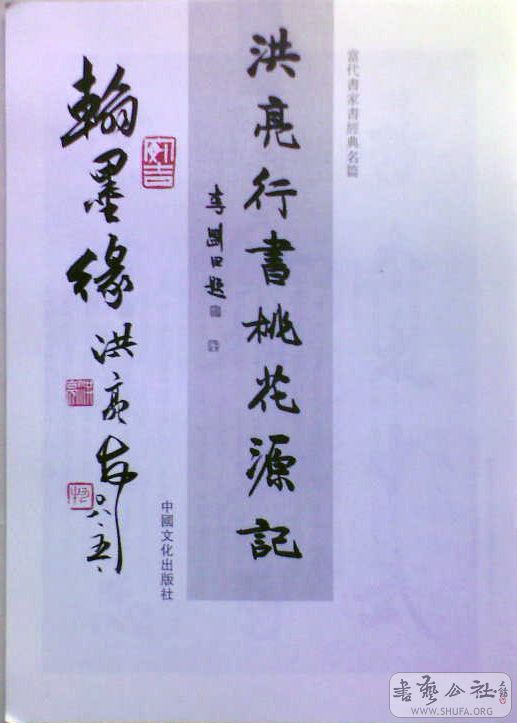 當代書家書經典名篇
洪亮行書桃花源記
李剛田題
翰墨緣
洪亮
中國文化出版社
書藝公社
WWW.SHUFA.ORG